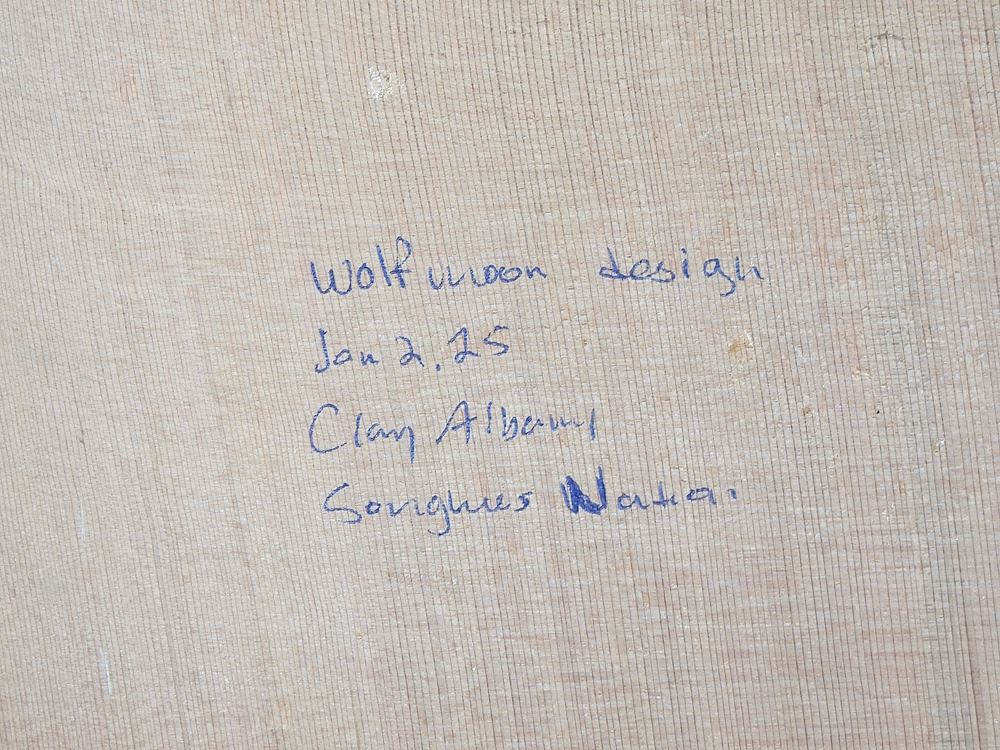 Wolf moon design
Jan 2. 25
Clay Albany
Songhees Nation